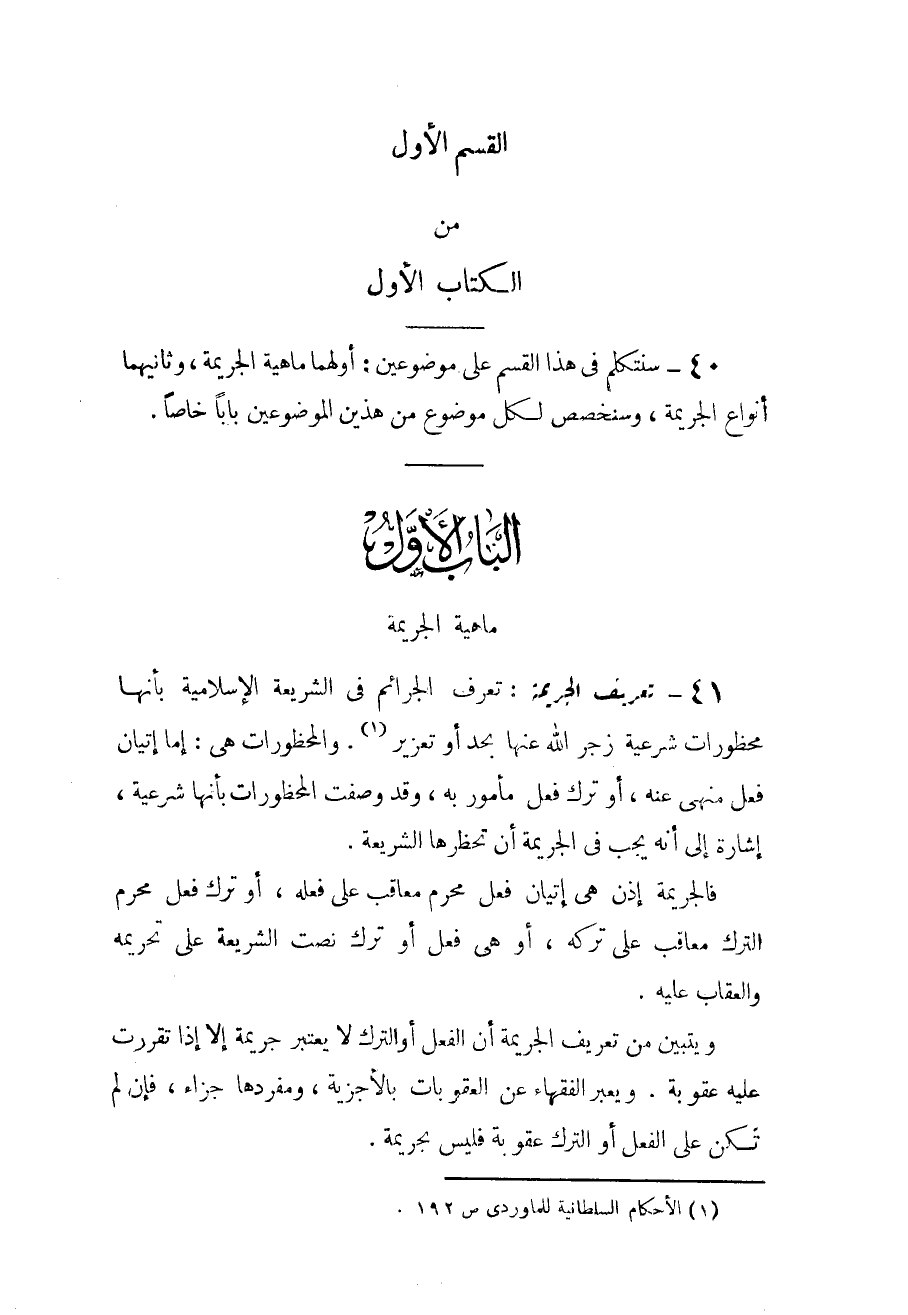 القسم الأول
من
الكتاب الأول
٤٠ – سنتكلم فى هذا القسم على موضوعين : أولهما ماهية الجريمة ، وثانيهما
أنواع الجريمة ، وسنخصص لكل موضوع من هذين الموضوعين باباً خاصاً .
البَابُ الأَوَّلُ
ماهية الجريمة
٤١ – تعريف الجريمة : تعرف الجرائم فى الشريعة الإسلامية بأنها
محظورات شرعية زجر الله عنها بحد أو تعزير (١) . والمحظورات هى : إما إتيان
فعل منهى عنه ، أو ترك فعل مأمور به ، وقد وصفت المحظورات بأنها شرعية ،
إشارة إلى أنه يجب فى الجريمة أن تحظرها الشريعة .
فالجريمة إذن هى إتيان فعل محرم معاقب على فعله ، أو ترك فعل محرم
الترك معاقب على تركه ، أو هى فعل أو ترك نصت الشريعة على تحريمه
والعقاب عليه .
ويتبين من تعريف الجريمة أن الفعل أو الترك لا يعتبر جريمة إلا إذا تقررت
عليه عقوبة . ويعبر الفقهاء عن العقوبات بالأجزية ، ومفردها جزاء ، فإن لم
تكن على الفعل أو الترك عقوبة فليس بجريمة .
(١) الأحكام السلطانية للماوردى ص ١٩٢ .